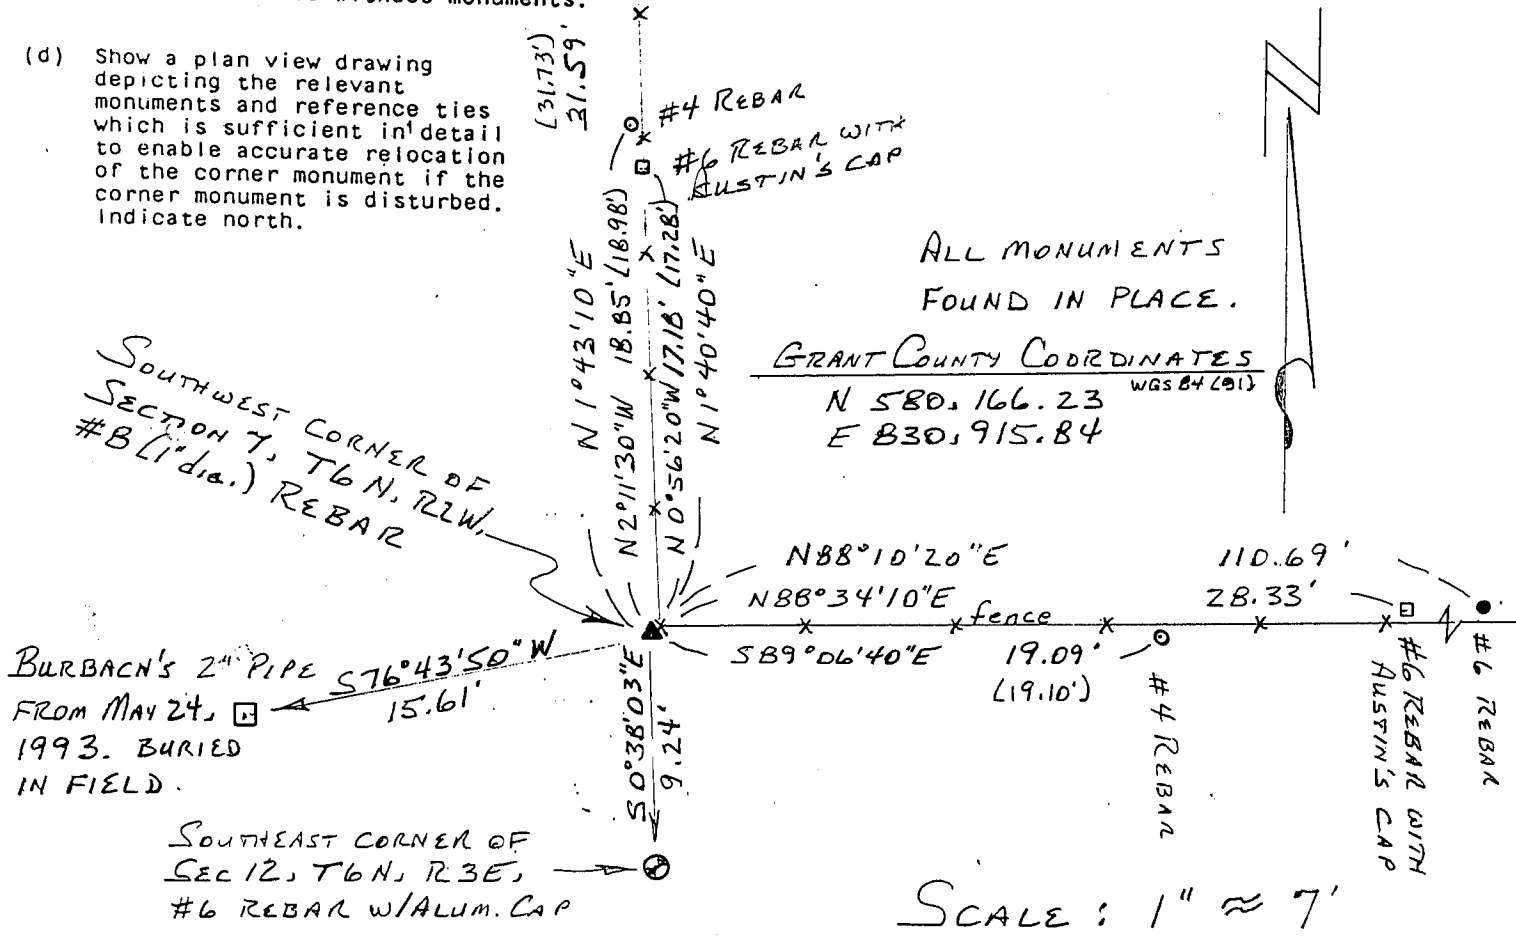 monuments.
(d) Show a plan view drawing
depicting the relevant
monuments and reference ties
which is sufficient in detail
to enable accurate relocation
of the corner monument if the
corner monument is disturbed.
Indicate north.
(31.73')
31.59'
#4 REBAR
#6 REBAR WITH
AUSTIN'S CAP
N 1°43'10"E
N2°11'30"W 18.85' (18.98')
N 0°56'20"W 17.18' (17.28')
N1°40'40"E
ALL MONUMENTS
FOUND IN PLACE.
GRANT COUNTY COORDINATES
WGS 84 (91)
N 580,166.23
E 830,915.84
SOUTHWEST CORNER OF
SECTION 7, T6N, R2W,
#8 (1"dia.) REBAR
N88°10'20"E 110.69'
N88°34'10"E 28.33'
fence
S89°06'40"E 19.09'
(19.10')
#4 REBAR
#6 REBAR WITH
AUSTIN'S CAP
#6 REBAR
BURBACH'S 2" PIPE
FROM MAY 24,
1993. BURIED
IN FIELD.
S76°43'50"W
15.61'
S0°38'03"E
9.24'
SOUTHEAST CORNER OF
SEC 12, T6N, R3E,
#6 REBAR W/ALUM. CAP
SCALE: 1" ≈ 7'